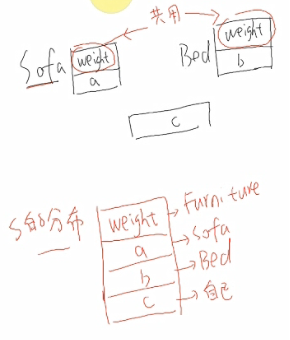 共用
Sofa weight
a
Bed weight
b
c
S的分布
weight Furniture
a Sofa
b Bed
c 自己